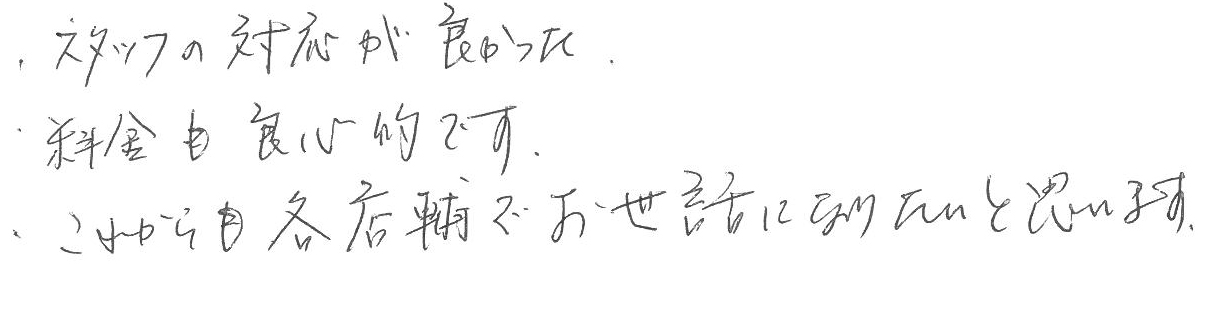 ・スタッフの対応が良かった.
・料金も良心的です.
・これからも各店輔でお世話になりたいと思います.